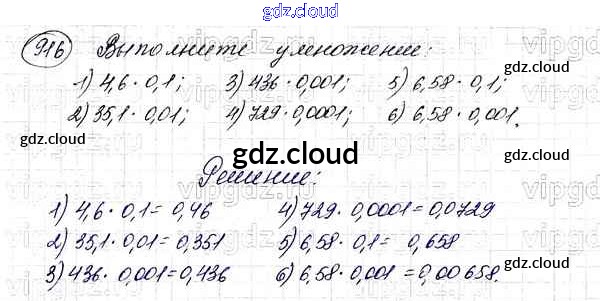 gdz.cloud
916 Выполните умножение:
1) 4,6 · 0,1; 3) 436 · 0,001; 5) 6,58 · 0,1;
2) 35,1 · 0,01; 4) 729 · 0,0001; 6) 6,58 · 0,001.
gdz.cloud
Решение:
1) 4,6 · 0,1 = 0,46 4) 729 · 0,0001 = 0,0729
2) 35,1 · 0,01 = 0,351 5) 6,58 · 0,1 = 0,658
3) 436 · 0,001 = 0,436 6) 6,58 · 0,001 = 0,00658.
gdz.cloud
gdz.cloud
gdz.cloud
gdz.cloud
gdz.cloud
gdz.cloud